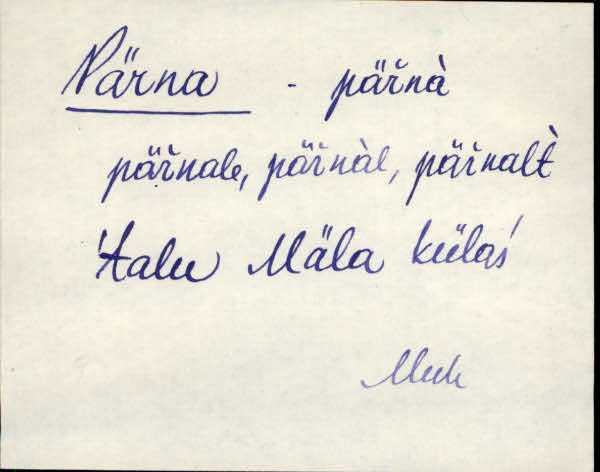 Pärna - päřnà
päřnale, päřnàl, päřnalt̀
'talu Mäla külas
Muh